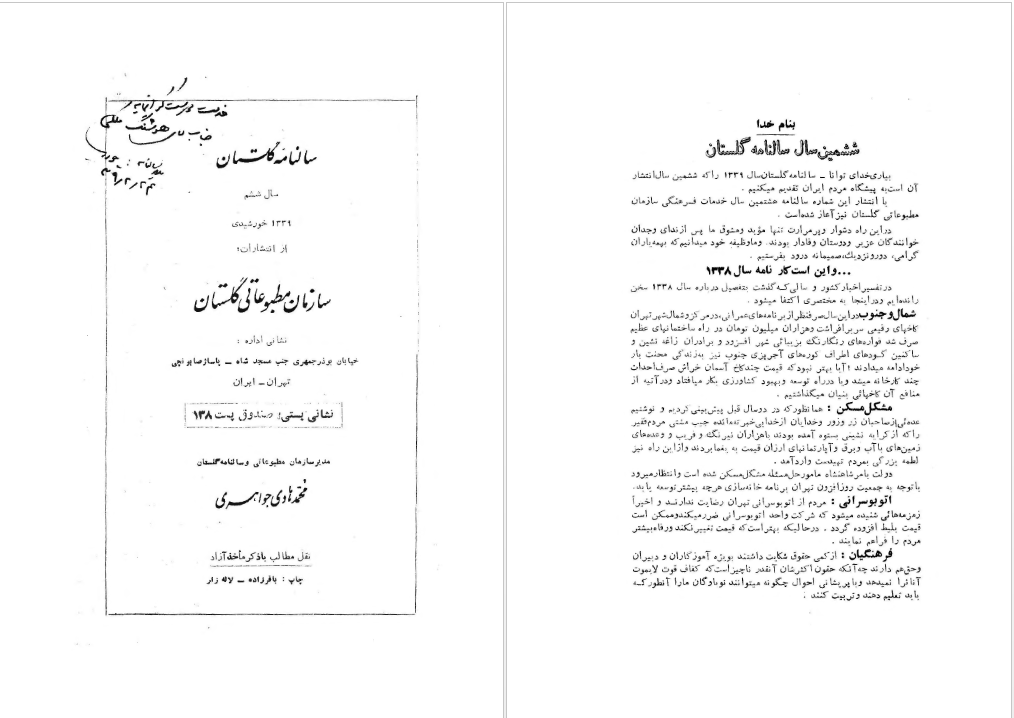 سالنامه گلستان
سال ششم
۱۳۳۹ خورشیدی
از انتشارات:
سازمان مطبوعاتی گلستان
نشانی اداره :
خیابان بوذرجمهری جنب مسجد شاه ــ پاساژ صابونچی
تهران ــ ایران
نشانی پستی: صندوق پست ۱۳۸
مدیر سازمان مطبوعاتی و سالنامه گلستان
محمد هادی جواهری
نقل مطالب با ذکر مأخذ آزاد
چاپ : باقرزاده ــ لاله زار
بنام خدا
ششمین سال سالنامه گلستان
بیاری خدای توانا ــ سالنامه گلستان سال ۱۳۳۹ را که ششمین سال انتشار
آن است به پیشگاه مردم ایران تقدیم میکنیم .
با انتشار این شماره سالنامه هشتمین سال خدمات فرهنگی سازمان
مطبوعاتی گلستان نیز آغاز شده است .
در این راه دشوار و پر مرارت تنها مؤید و مشوق ما پس از ندای وجدان
خوانندگان عزیز و دوستان وفادار بودند. و ما وظیفه خود میدانیم که بهمه یاران
گرامی، دور و نزدیک، صمیمانه درود بفرستیم .
...و این است کار نامه سال ۱۳۳۸
در تفسیر اخبار کشور و سالی که گذشت بتفصیل درباره سال ۱۳۳۸ سخن
رانده‌ایم و در اینجا به مختصری اکتفا میشود .
شمال و جنوب در این سال صرفنظر از برنامه‌های عمرانی، در مرکز و شمال شهر تهران
کاخهای رفیعی سر برافراشت و هزاران میلیون تومان در راه ساختمانهای عظیم
صرف شد فواره‌های رنگارنگ بزیبائی شهر افزود و برادران زاغه نشین و
ساکنین گودهای اطراف کوره‌های آجرپزی جنوب نیز به زندگی محنت بار
خود ادامه میدادند ! آیا بهتر نبود که قیمت چند کاخ آسمان خراش صرف احداث
چند کارخانه میشد و یا در راه توسعه و بهبود کشاورزی بکار میافتاد و در آتیه از
منافع آن کاخهائی بنیان میگذاشتیم .
مشکل مسکن : همانطور که در دو سال قبل پیش بینی کردیم و نوشتیم
عده‌ئی از صاحبان زر و زور و خدایان از خدا بی خبر ته‌مانده جیب مشتی مردم فقیر
را که از کرایه نشینی بستوه آمده بودند با هزاران نیرنگ و فریب و وعده‌های
زمین‌های با آب و برق و آپارتمانهای ارزان قیمت به یغما بردند و از این راه نیز
لطمه بزرگی بمردم تهیدست وارد آمد .
دولت بامر شاهنشاه مامور حل مسئله مشکل مسکن شده است و انتظار میرود
با توجه به جمعیت روز افزون تهران برنامه خانه سازی هرچه بیشتر توسعه یابد.
اتوبوسرانی : مردم از اتوبوسرانی تهران رضایت ندارند و اخیراً
زمزمه‌هائی شنیده میشود که شرکت واحد اتوبوسرانی ضرر میکند و ممکن است
قیمت بلیط افزوده گردد . در حالیکه بهتر است که قیمت تغییر نکند و رفاه بیشتر
مردم را فراهم نمایند .
فرهنگیان : از کمی حقوق شکایت داشتند بویژه آموزگاران و دبیران
و حق هم دارند چه آنکه حقوق اکثرشان آنقدر ناچیز است که کفاف قوت لایموت
آنانرا نمیدهد و با پریشانی احوال چگونه میتوانند نوباوگان ما را آنطور که
باید تعلیم دهند و تربیت کنند .